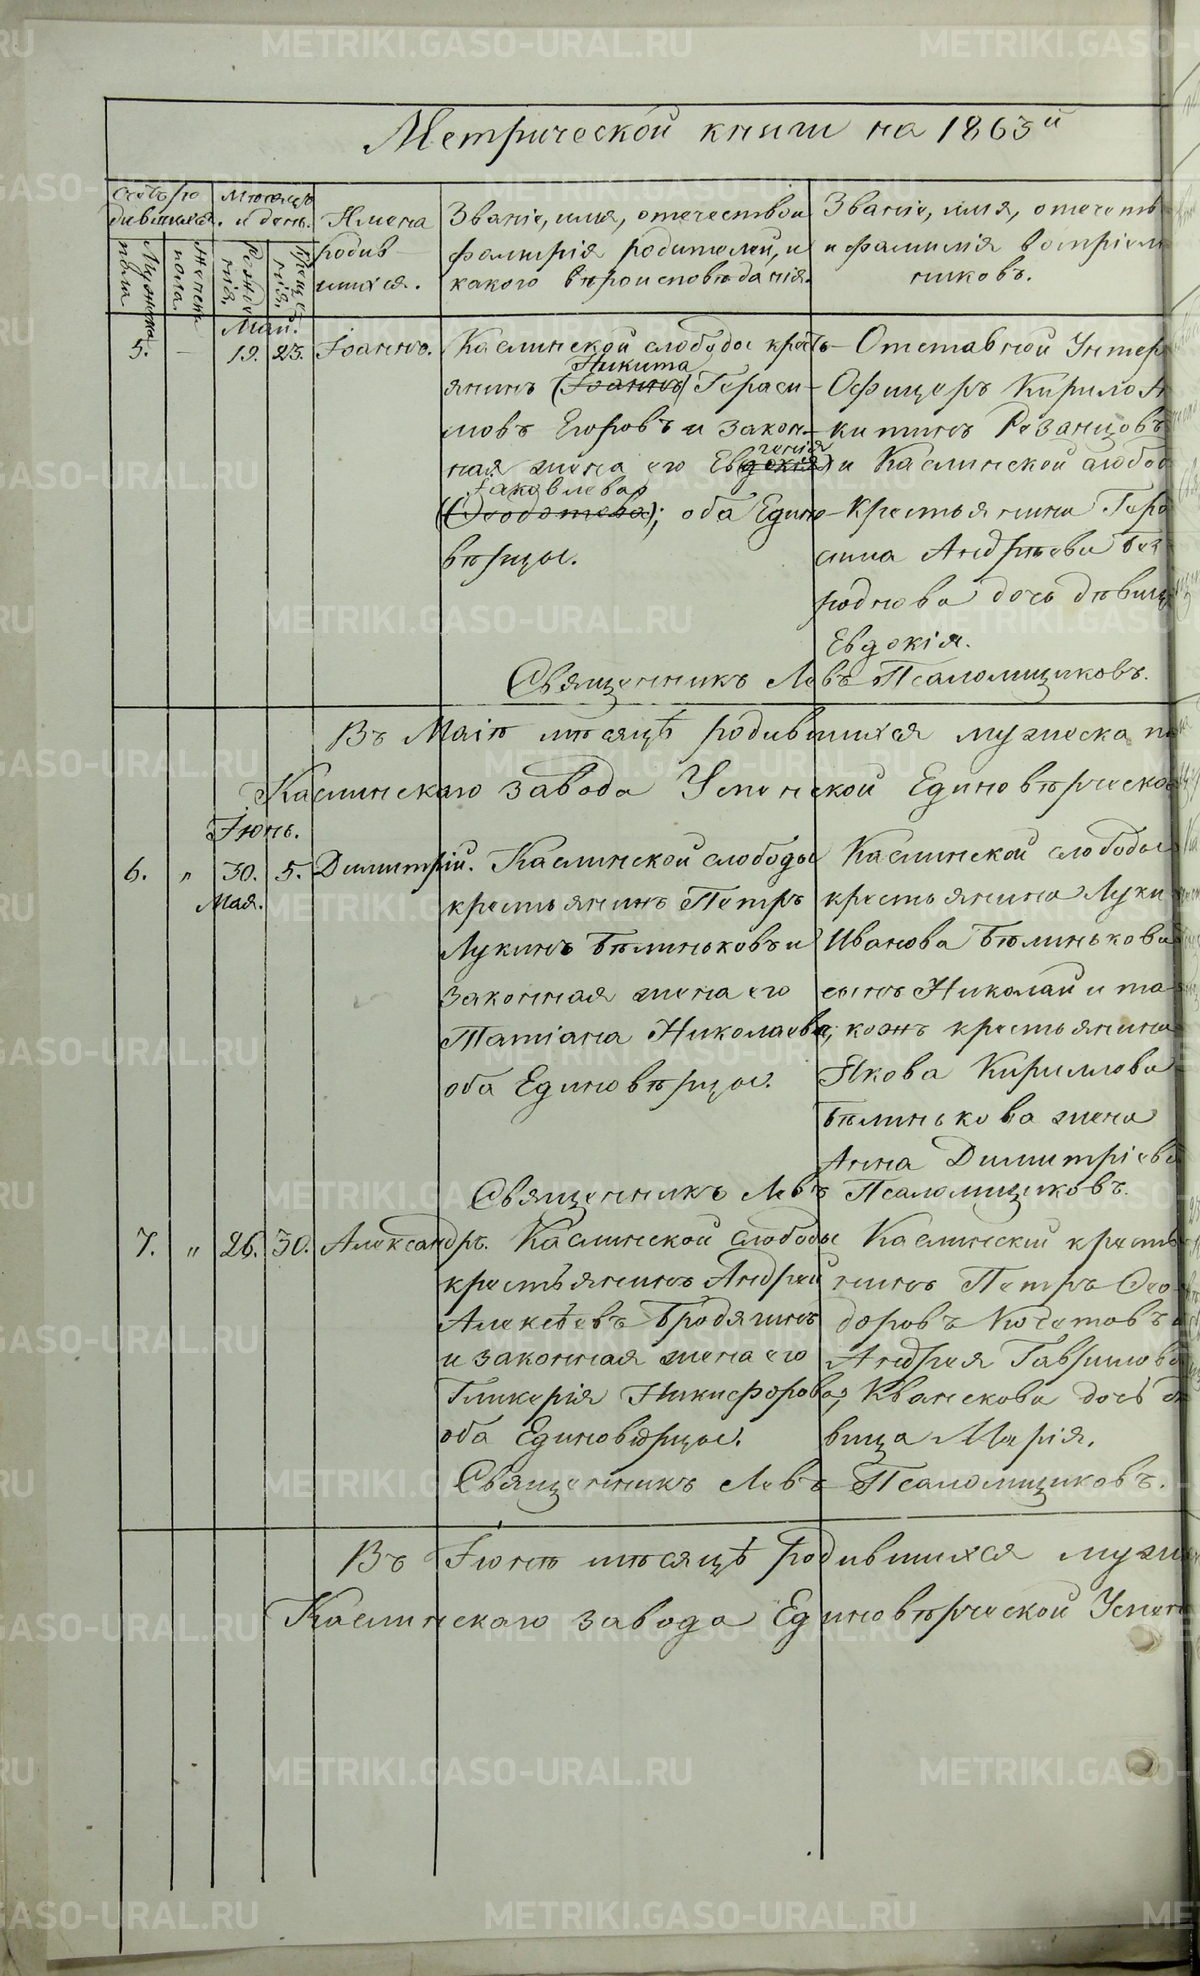 Метрической книги на 1863й
Счетъ ро
дившихся.
Мѣсяцъ
и день.
Мужска
пола
Женска
пола.
Рожде
нія.
Креще
нія.
Имена
родив
шихся.
Званіе, имя, отечество и
фамилія родителей, и
какого вѣроисповѣданія.
Званіе, имя, отечеств
и фамилія воспріем
никовъ.
Май.
5. — 19. 23. Іоаннъ.
Каслинской слободы крестъ-
Никита
янинъ (Іоаннъ) Гераси-
мовъ Егоровъ и закон-
генія
ная жена его Евдокія)
Іаковлева
(Ѳеодотева); оба Едино-
вѣрцы.
Отставной Унтеръ
Офицеръ Кирило
китинъ Рязанцовъ
и Каслинской слобод
Крестьянина Гера
сима Андрѣева Без
роднова дочь дѣвиц
Евдокія.
Священникъ Левъ Псаломщиковъ.
Въ Маіѣ мѣсяцѣ родившихся мужеска п
Каслинскаго завода Успенской Единовѣрческой
Іюнь.
6. " 30. 5. Димитрій.
Мая.
Каслинской слободы
крестьянинъ Петръ
Лукинъ Бѣлиньковъ и
законная жена его
Татіана Николаева,
оба Единовѣрцы.
Каслинской слободы
крестьянина Луки
Иванова Бѣлинькова
сынъ Николай и та-
коже крестьянина
Якова Кириллова
Бѣлинькова жена
Анна Димитріева
Священникъ Левъ Псаломщиковъ.
7. " 26. 30. Александръ.
Каслинской слободы
крестьянинъ Андрей
Алексѣевъ Бродягинъ
и законная жена его
Гликерія Никифорова,
оба Единовѣрцы.
Каслинскій кресть
нинъ Петръ Ѳео-
доровъ Кочетовъ и
Андрея Гаврилова
Квамскова дочь дѣ
вица Марія.
Священникъ Левъ Псаломщиковъ.
Въ Іюнѣ мѣсяцѣ родившихся муже
Каслинскаго завода Единовѣрческой Успен